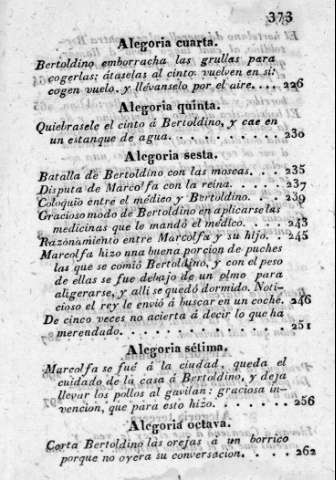 373
Alegoria cuarta.
Bertoldino emborracha las grullas para
cogerlas; átaselas al cinto: vuelven en sí:
cogen vuelo, y llévanselo por el aire.... 226
Alegoria quinta.
Quiebrasele el cinto á Bertoldino, y cae en
un estanque de agua. . . . . . . . . . . 230
Alegoria sesta.
Batalla de Bertoldino con las moscas. . . 235
Disputa de Marcolfa con la reina. . . . 237
Coloquio entre el médico y Bertoldino. . 239
Gracioso modo de Bertoldino en aplicarse las
medicinas que le mandó el médico. . . . . 243
Razonamiento entre Marcolfa y su hijo. . 245
Marcolfa hizo nna buena porcion de puches
las que se comió Bertoldino, y con el peso
de ellas se fue debajo de un olmo para
aligerarse, y alli se quedó dormido. Noti-
cioso el rey le envió á buscar en un coche. 246
De cinco veces no acierta á decir lo que ha
merendado. . . . . . . . . . . . . . . 251
Alegoria sétima.
Marcolfa se fué á la ciudad, queda el
cuidado de la casa á Bertoldino, y deja
llevar los pollos al gavilan: graciosa in-
vencion, que para esto hizo. . . . . . . 256
Alegoria octava.
Corta Bertoldino las orejas á un borrico
porque no oyera su conversacion. . . . . 262